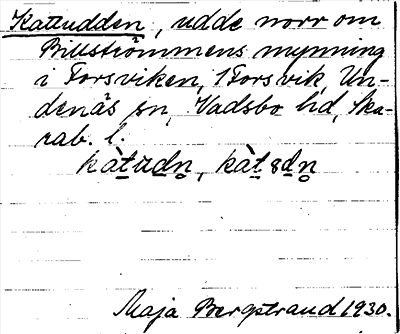 Kattudden, udde norr om
Billströmmens mynning
i Forsviken, 1 Forsvik, Un-
denäs sn, Vadsbo hd, Ska-
rab. l.
kàtudn, kàtsdn
Maja Bergstrand 1930.